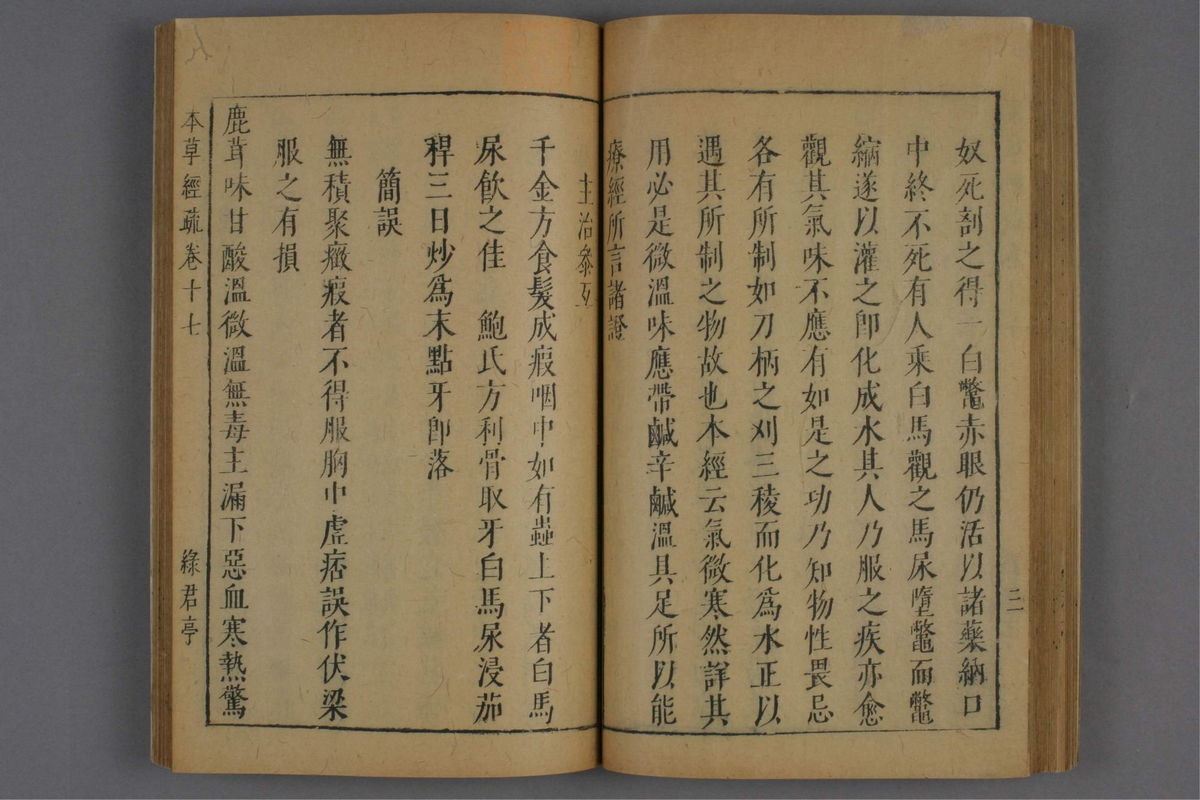 奴死剖之得一白鼈赤眼仍活以諸藥納口
中終不死有人乘白馬觀之馬尿墮鼈而鼈
縮遂以灌之卽化成水其人乃服之疾亦愈
觀其氣味不應有如是之功乃知物性畏忌
各有所制如刀柄之刈三稜而化爲水正以
遇其所制之物故也本經云氣微寒然詳其
用必是微溫味應帶鹹辛鹹溫具足所以能
療經所言諸證
主治參互
千金方食髮成瘕咽中如有蟲上下者白馬
尿飮之佳　鮑氏方利骨取牙白馬尿浸茄
稈三日炒爲末點牙卽落
簡誤
無積聚癥瘕者不得服胸中虛痞誤作伏梁
服之有損
鹿茸味甘酸溫微溫無毒主漏下惡血寒熱驚
本草經疏卷十七
綠君亭
二